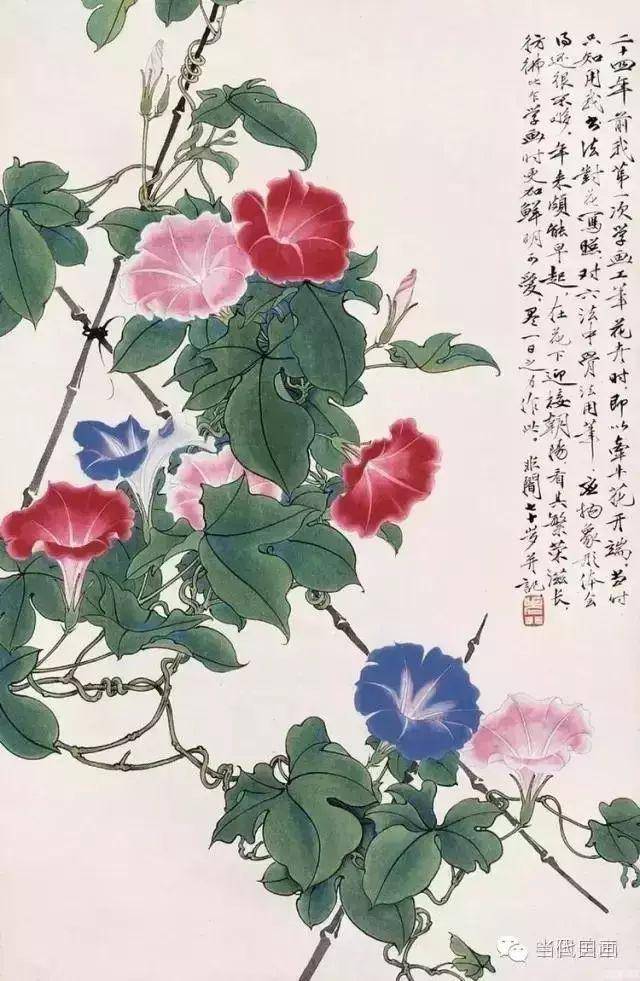 二十四年前我第一次学画工筆花卉时即以牽牛花开端当时
只知用我书法對花寫照对六法中骨法用筆、应物象形体会
得还很不够、年来頗能早起、在花下迎接朝陽看其繁荣滋长
彷彿比乍学画时更加鲜明可爱、尽一日之力作此。非闇七十岁并記
当代国画